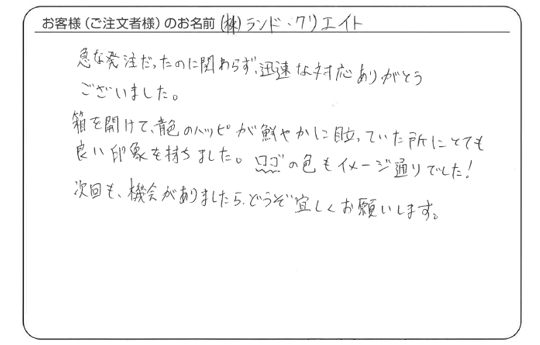 お客様(ご注文者様)のお名前 (株)ランド・クリエイト
急な発注だったのに関わらず、迅速な対応ありがとう
ございました。
箱を開けて、青色のハッピが鮮やかに目立っていた所にとても
良い印象を持ちました。ロゴの色もイメージ通りでした!
次回も、機会がありましたら、どうぞ宜しくお願いします。